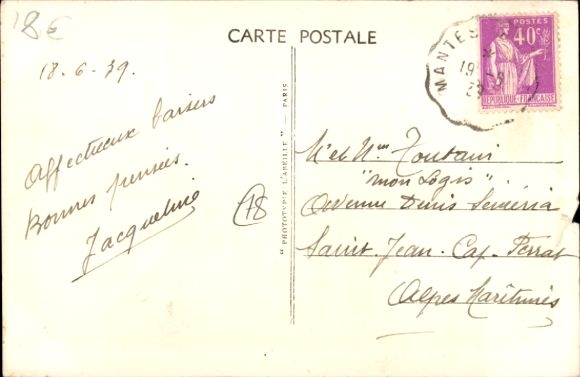 18€
CARTE POSTALE
18.6.39.
Affectueux baisers
Bonnes pensées.
Jacqueline
18
" PHOTOTYPIE L'ABEILLE " — PARIS
MANTES
19
POSTES
40c
REPUBLIQUE FRANCAISE
M et Mme
"Mon Logis".
Avenue Denis Séméria
Saint-Jean-Cap-Ferrat
Alpes Maritimes